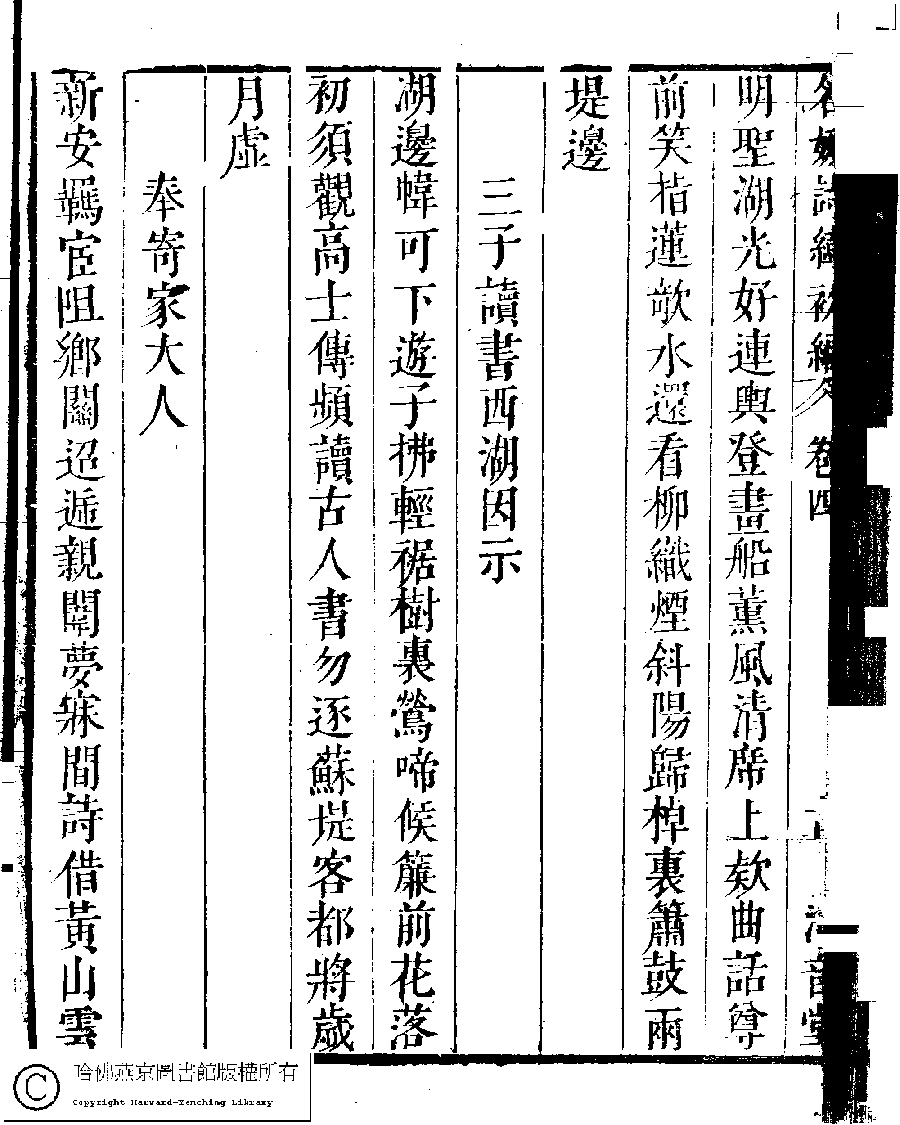 名媛詩緯初編 卷四 清音堂
明聖湖光好連輿登畫船薰風清席上欵曲話尊
前笑指蓮欹水還看柳織煙斜陽歸棹裏簫鼓兩
堤邊
三子讀書西湖因示
湖邊幃可下遊子拂輕裾樹裏鶯啼候簾前花落
初須觀高士傳頻讀古人書勿逐蘇堤客都將歲
月虛
奉寄家大人
新安羈宦阻鄉關迢遞親闈夢寐間詩借黃山雲
哈佛燕京圖書館版權所有
Copyright Harvard-Yenching Library